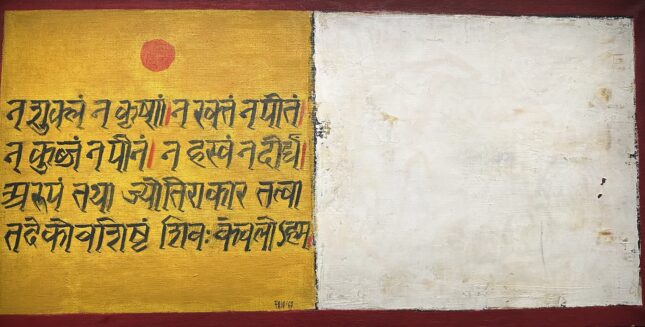 न शुक्लं न कृष्णं। न रक्तं न पीतं।
न कुब्जं न पीनं। न ह्रस्वं न दीर्घं।
अरूपं तथा ज्योतिराकार तत्वा
तदेकोवशिष्टं शिवः केवलोऽहम।